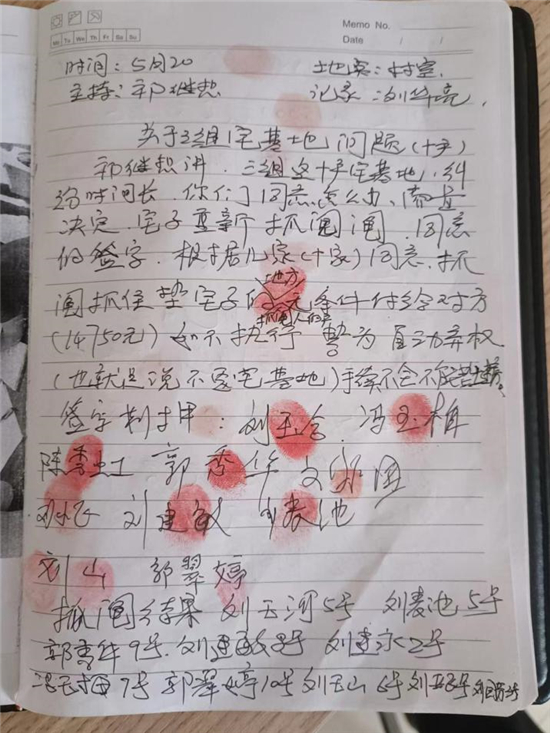 Memo No.
Mo Tu We Th Fr Sa Su
Date / /
时间：5月20 地点：村室
主持：郭继想 记录：刘华亮
关于三组宅基地问题（十户）
郭继想讲．三组这十户宅基地．纠
纷时间长．你们同意怎么办、商量
决定．宅子重新抓阄阄．同意
的签字．根据几家（十家）同意．抓
地方
阄抓住垫宅子的 无条件付给对方
抓阄人的
（14750元）如不执行 暂为自动弃权
（也就是说不要宅基地）手续不全不能
签字制才甲：刘玉合．冯玉梅
陈秀虹 郭秀华
刘建敏 刘麦池
刘山 郭翠婷
抓阄结果 刘玉河5号 刘麦池5号
郭秀华9号．刘建敏8号 2号
冯玉梅7号 郭翠婷10号 刘玉山6号